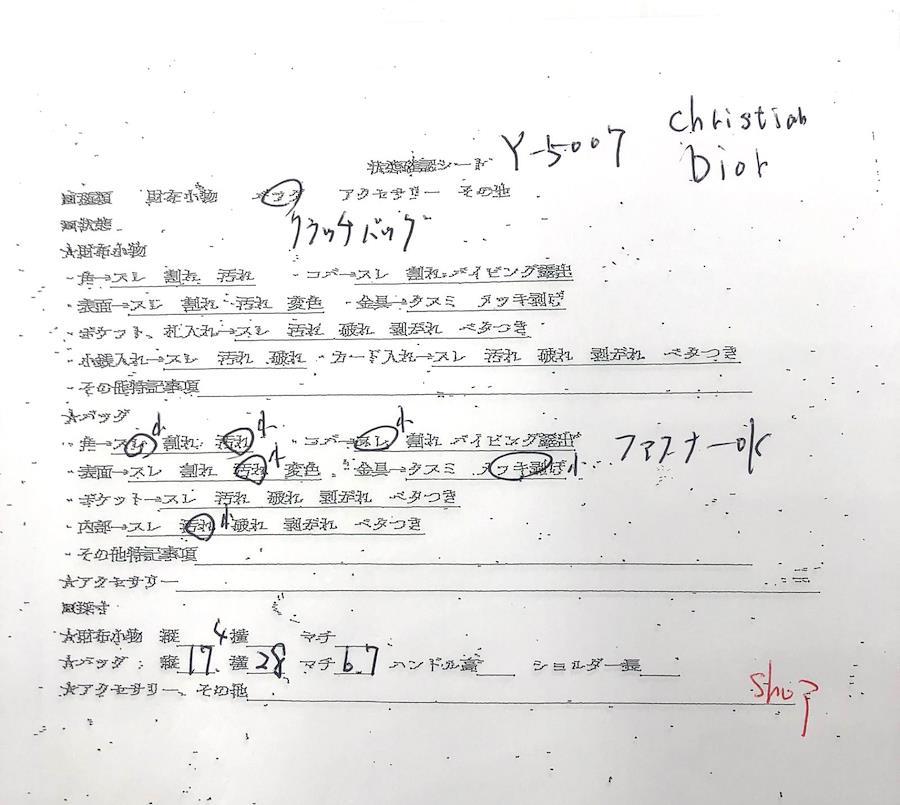 状態確認シート Y-5007 Christian Dior
■種類 財布小物 バッグ アクセサリー その他
■状態 クラッチバッグ
★財布小物
・角→スレ 割れ 汚れ ・コバ→スレ 割れ パイピング露出
・表面→スレ 割れ 汚れ 変色 ・金具→クスミ メッキ剥げ
・ポケット、札入れ→スレ 汚れ 破れ 剥がれ ベタつき
・小銭入れ→スレ 汚れ 破れ ・カード入れ→スレ 汚れ 破れ 剥がれ ベタつき
・その他特記事項
★バッグ
・角→スレ小 割れ 汚れ小 ・コバ→スレ小 割れ パイピング露出
・表面→スレ 割れ 汚れ小 変色 ・金具→クスミ メッキ剥げ小 ファスナーok
・ポケット→スレ 汚れ 破れ 剥がれ ベタつき
・内部→スレ 汚れ小 破れ 剥がれ ベタつき
・その他特記事項
★アクセサリー
■採寸
★財布小物 縦 4 横 マチ
★バッグ: 縦17. 横28 マチ6.7 ハンドル高 ショルダー長
★アクセサリー、その他
Shop